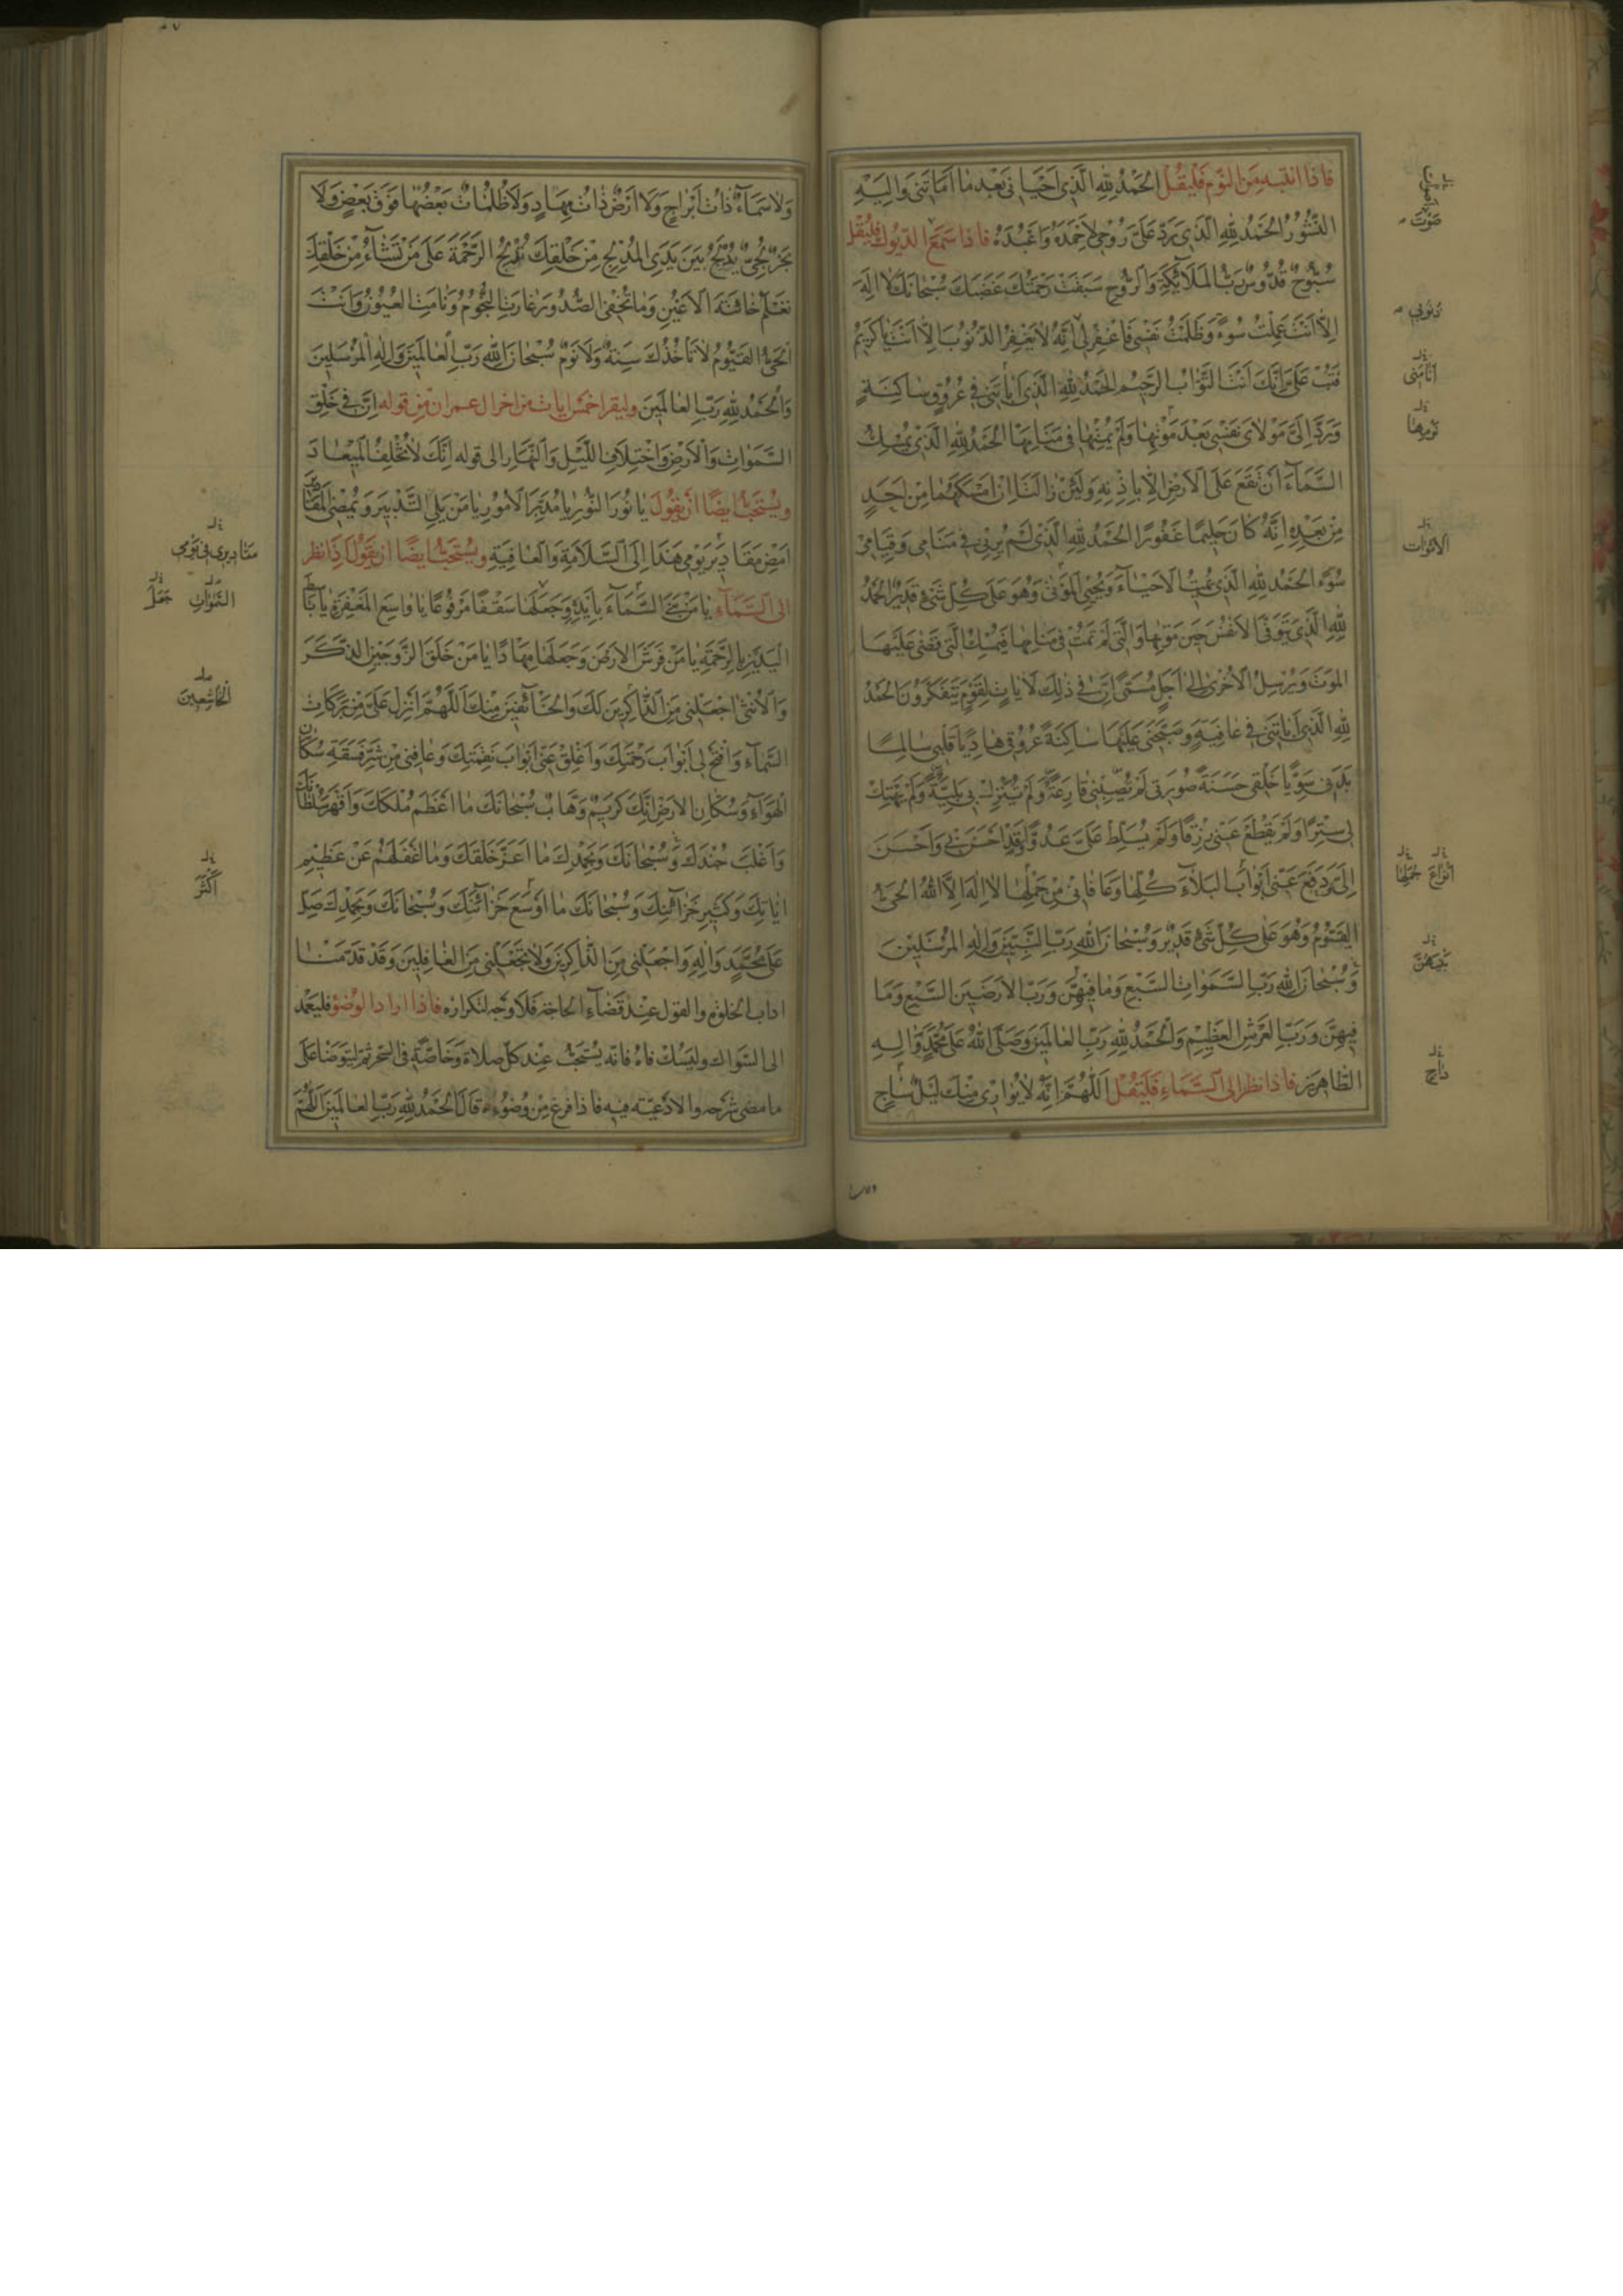 فَاِذَا انْتَبَهَ مِنَ النَّوْمِ فَلْيَقُلْ اَلْحَمْدُ لِلّٰهِ الَّذِى اَحْيَانِى بَعْدَ مَا اَمَاتَنِى وَاِلَيْهِ
النُّشُورُ اَلْحَمْدُ لِلّٰهِ الَّذِى رَدَّ عَلَىَّ رُوْحِى لِاَحْمَدَهُ وَاَعْبُدَهُ فَاِذَا سَمِعَ الدُّيُوكَ فَلْيَقُلْ
سُبُّوحٌ قُدُّوسٌ رَبُّ الْمَلٰٓائِكَةِ وَالرُّوحِ سَبَقَتْ رَحْمَتُكَ غَضَبَكَ سُبْحَانَكَ لَا اِلٰهَ
اِلَّا اَنْتَ عَمِلْتُ سُوْءً وَظَلَمْتُ نَفْسِى فَاغْفِرْ لِى اِنَّهُ لَا يَغْفِرُ الذُّنُوبَ اِلَّا اَنْتَ يَا كَرِيمُ
فَتُبْ عَلَىَّ اِنَّكَ اَنْتَ التَّوَّابُ الرَّحِيمُ اَلْحَمْدُ لِلّٰهِ الَّذِى اَبَاتَنِى فِى عُرُوقٍ سَاكِنَةٍ
وَرَدَّ اِلَىَّ مَوْلَاىَ نَفْسِى بَعْدَ مَوْتِهَا وَلَمْ يُمِتْهَا فِى مَنَامِهَا اَلْحَمْدُ لِلّٰهِ الَّذِى يُمْسِكُ
السَّمَآءَ اَنْ تَقَعَ عَلَى الْاَرْضِ اِلَّا بِاِذْنِهِ وَلَئِنْ زَالَتَا اِنْ اَمْسَكَهُمَا مِنْ اَحَدٍ
مِنْ بَعْدِهِ اِنَّهُ كَانَ حَلِيمًا غَفُورًا اَلْحَمْدُ لِلّٰهِ الَّذِى لَمْ يُرِنِى فِى مَنَامِى وَقِيَامِى
سُوْءً اَلْحَمْدُ لِلّٰهِ الَّذِى يُمِيتُ الْاَحْيَآءَ وَيُحْيِى الْمَوْتٰى وَهُوَ عَلٰى كُلِّ شَىْءٍ قَدِيرٌ اَلْحَمْدُ
لِلّٰهِ الَّذِى يَتَوَفَّى الْاَنْفُسَ حِينَ مَوْتِهَا وَالَّتِى لَمْ تَمُتْ فِى مَنَامِهَا فَيُمْسِكُ الَّتِى قَضٰى عَلَيْهَا
الْمَوْتَ وَيُرْسِلُ الْاُخْرٰى اِلٰى اَجَلٍ مُسَمًّى اِنَّ فِى ذٰلِكَ لَاٰيَاتٍ لِقَوْمٍ يَتَفَكَّرُونَ اَلْحَمْدُ
لِلّٰهِ الَّذِى اَبَاتَنِى فِى عَافِيَةٍ وَصَبَّحَنِى عَلَيْهَا سَاكِنَةً عُرُوقِى هَادِيًا قَلْبِى سَالِمًا
بَدَنِى سَوِيًّا خَلْقِى حَسَنَةً صُورَتِى لَمْ تُصِبْنِى قَارِعَةٌ وَلَمْ تُنْزِلْ بِى بَلِيَّةٌ وَلَمْ يَهْتِكْ
لِى سِتْرًا وَلَمْ يَقْطَعْ عَنِّى رِزْقًا وَلَمْ يُسَلِّطْ عَلَىَّ عَدُوًّا وَقَدْ اَحْسَنَ بِى وَاَحْسَنَ
اِلَىَّ وَدَفَعَ عَنِّى اَبْوَابَ الْبَلَآءِ كُلَّهَا وَعَافَانِى مِنْ جُمَلِهَا لَا اِلٰهَ اِلَّا اللّٰهُ الْحَىُّ
الْقَيُّومُ وَهُوَ عَلٰى كُلِّ شَىْءٍ قَدِيرٌ وَسُبْحَانَ اللّٰهِ رَبِّ النَّبِيِّينَ وَاِلٰهِ الْمُرْسَلِينَ
وَسُبْحَانَ اللّٰهِ رَبِّ السَّمٰوَاتِ السَّبْعِ وَمَا فِيهِنَّ وَرَبِّ الْاَرَضِينَ السَّبْعِ وَمَا
فِيهِنَّ وَرَبِّ الْعَرْشِ الْعَظِيمِ وَالْحَمْدُ لِلّٰهِ رَبِّ الْعَالَمِينَ وَصَلَّى اللّٰهُ عَلٰى مُحَمَّدٍ وَاٰلِهِ
الطَّاهِرِينَ فَاِذَا نَظَرَ اِلَى السَّمَآءِ فَلْيَقُلْ اَللّٰهُمَّ اِنَّهُ لَا يُوَارِى مِنْكَ لَيْلٌ سَاجٍ
صَوْتَ
ذُنُوبِى
اَنَامَنِى
نَوْمِهَا
الْاَمْوَاتَ
اَنْوَاعَ جُمْلَتِهَا
بَيْنَهُنَّ
دَاجٍ
وَلَا سَمَآءٌ ذَاتُ اَبْرَاجٍ وَلَا اَرْضٌ ذَاتُ مِهَادٍ وَلَا ظُلُمَاتٌ بَعْضُهَا فَوْقَ بَعْضٍ وَلَا
بَحْرٌ لُجِّىٌّ يُدْلِجُ بَيْنَ يَدَىِ الْمُدْلِجِ مِنْ خَلْقِكَ تُدْلِجُ الرَّحْمَةَ عَلٰى مَنْ تَشَآءُ مِنْ خَلْقِكَ
تَعْلَمُ خَائِنَةَ الْاَعْيُنِ وَمَا تُخْفِى الصُّدُورُ غَارَتِ النُّجُومُ وَنَامَتِ الْعُيُونُ وَاَنْتَ
الْحَىُّ الْقَيُّومُ لَا تَأْخُذُكَ سِنَةٌ وَلَا نَوْمٌ سُبْحَانَ اللّٰهِ رَبِّ الْعَالَمِينَ وَاِلٰهِ الْمُرْسَلِينَ
وَالْحَمْدُ لِلّٰهِ رَبِّ الْعَالَمِينَ وليقرا خمس ايات من اخر ال عمران من قوله اِنَّ فِى خَلْقِ
السَّمٰوَاتِ وَالْاَرْضِ وَاخْتِلَافِ اللَّيْلِ وَالنَّهَارِ الى قوله اِنَّكَ لَا تُخْلِفُ الْمِيعَادَ
ويُسْتَحَبُّ ايضًا ان يقول يَا نُورَ النُّورِ يَا مُدَبِّرَ الْاُمُورِ يَا مَنْ يَلِى التَّدْبِيرَ وَيُمْضِى الْمَقَادِيرَ
اَمْضِ مَقَادِيرَ يَوْمِى هٰذَا اِلَى السَّلَامَةِ وَالْعَافِيَةِ ويُسْتَحَبُّ ايضًا ان يقول اذا نظر
الى السَّمَآءِ يَا مَنْ بَنَى السَّمَآءَ بِاَيْدٍ وَجَعَلَهَا سَقْفًا مَرْفُوعًا يَا وَاسِعَ الْمَغْفِرَةِ يَا بَاسِطَ
الْيَدَيْنِ بِالرَّحْمَةِ يَا مَنْ فَرَشَ الْاَرْضَ وَجَعَلَهَا مِهَادًا يَا مَنْ خَلَقَ الزَّوْجَيْنِ الذَّكَرَ
وَالْاُنْثٰى اجْعَلْنِى مِنَ الذَّاكِرِينَ لَكَ وَالْخَآئِفِينَ مِنْكَ اَللّٰهُمَّ اَنْزِلْ عَلَىَّ مِنْ بَرَكَاتِ
السَّمَآءِ وَافْتَحْ لِى اَبْوَابَ رَحْمَتِكَ وَاَغْلِقْ عَنِّى اَبْوَابَ نَقِمَتِكَ وَعَافِنِى مِنْ شَرِّ فَسَقَةِ سُكَّانِ
الْهَوَآءِ وَسُكَّانِ الْاَرْضِ اِنَّكَ كَرِيمٌ وَهَّابٌ سُبْحَانَكَ مَا اَعْظَمَ مُلْكَكَ وَاَقْهَرَ سُلْطَانَكَ
وَاَغْلَبَ جُنْدَكَ وَسُبْحَانَكَ وَبِحَمْدِكَ مَا اَعَزَّ خَلْقَكَ وَمَا اَغْفَلَهُمْ عَنْ عَظِيمِ
اٰيَاتِكَ وَكَثِيرِ خَزَآئِنِكَ وَسُبْحَانَكَ مَا اَوْسَعَ خَزَآئِنَكَ وَسُبْحَانَكَ وَبِحَمْدِكَ صَلِّ
عَلٰى مُحَمَّدٍ وَاٰلِهِ وَاجْعَلْنِى مِنَ الذَّاكِرِينَ وَلَا تَجْعَلْنِى مِنَ الْغَافِلِينَ وَقَدْ قَدَّمْنَا
اداب الخلوة والقول عِنْدَ قَضَآءِ الحاجة فَلَا وَجْه لتكراره فاذا اراد الوُضوْءَ فليَعْمد
الى السّواك وليَسُكْ فاهُ فانّه يُسْتَحَبُّ عِنْدَ كلّ صلاة وَخَاصّةً فى السّحر ثمّ ليتوضّأ عَلٰى
ما مضى شَرْحه والادْعِيَة فِيه فاذا فرغ مِنْ وُضُوْءِهِ قَالَ اَلْحَمْدُ لِلّٰهِ رَبِّ الْعَالَمِينَ اَللّٰهُمَّ
مَقَادِيرِى فِى يَوْمِى
السَّمٰوَاتِ جَعَلَ
الْخَاشِعِينَ
اَكْثَرَ